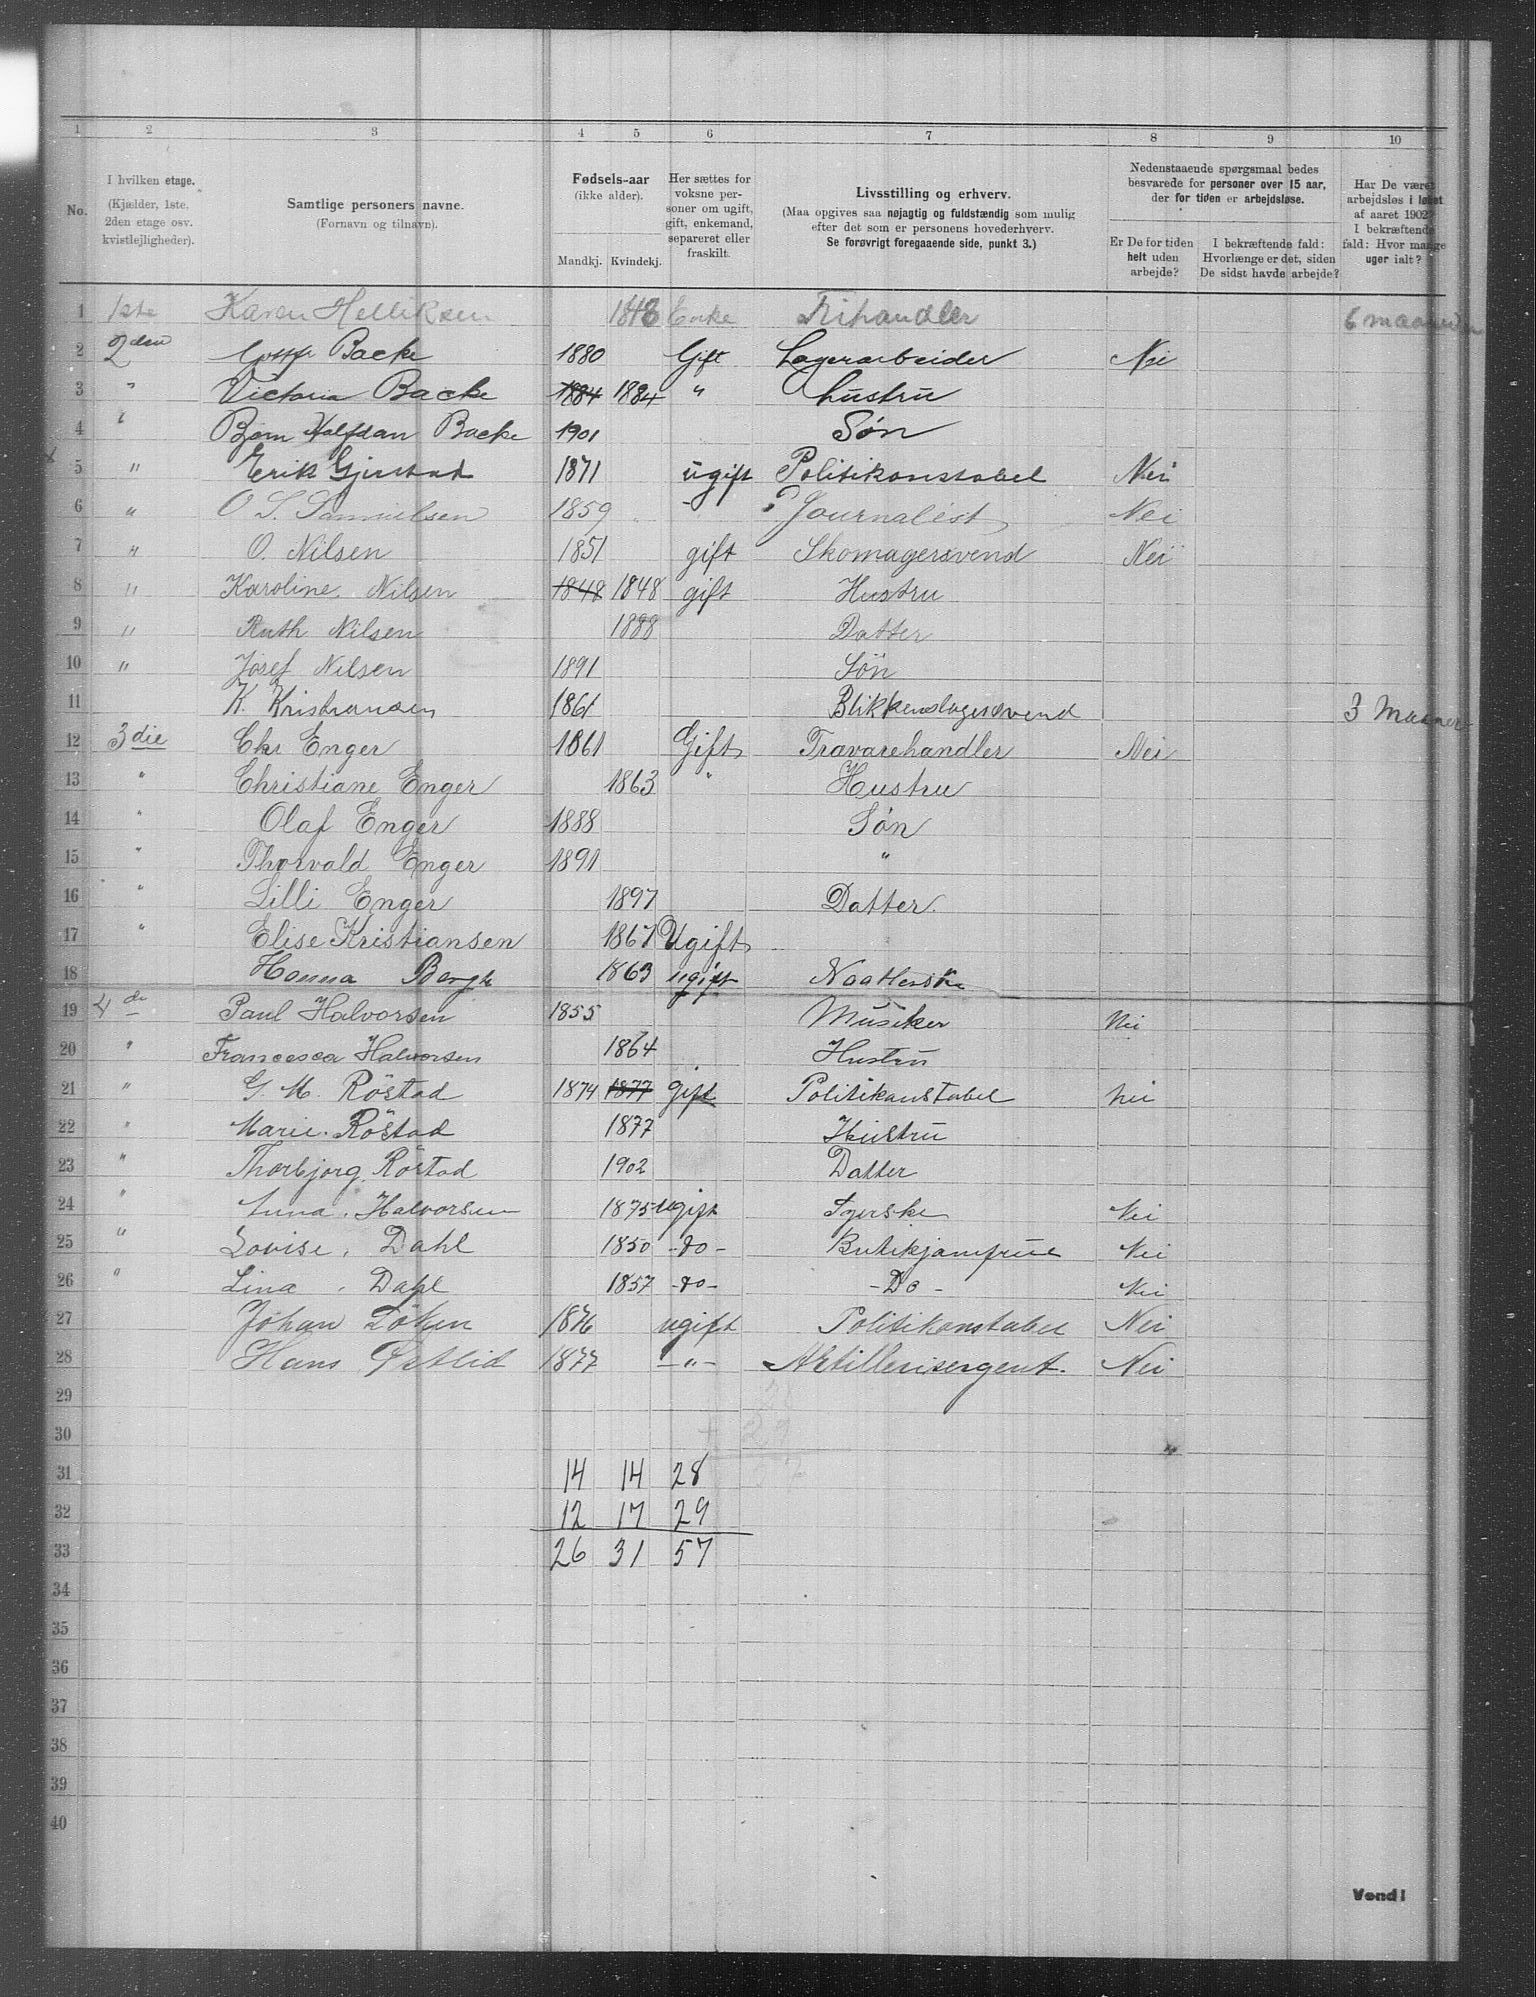 1 2 3 4 5 6 7 8 9 10
No.
I hvilken etage.
(Kjælder, 1ste,
2den etage osv.
kvistlejligheder).
Samtlige personers navne.
(Fornavn og tilnavn).
Fødsels-aar
(ikke alder).
Mandkj. Kvindekj.
Her sættes for
voksne per-
soner om ugift,
gift, enkemand,
separeret eller
fraskilt.
Livsstilling og erhverv.
(Maa opgives saa nøjagtig og fuldstændig som mulig
efter det som er personens hovederhverv.
Se forøvrigt foregaaende side, punkt 3.)
Nedenstaaende spørgsmaal bedes
besvarede for personer over 15 aar,
der for tiden er arbejdsløse.
Er De for tiden
helt uden
arbejde?
I bekræftende fald:
Hvorlænge er det, siden
De sidst havde arbejde?
Har De været
arbejdsløs i løbet
af aaret 1902?
I bekræftende
fald: Hvor mange
uger ialt?
1 1ste Karen Helliksen 1848 Enke 6 maaneder
2 2den Backe 1880 Gift Lagerarbeider Nei
3 " Victoria Backe 1884 1884 " hustru
4 " Bjørn Halfdan Backe 1901 Søn
5 " Erik Gjerstad 1871 ugift Politikonstabel Nei
6 " O. S. Samuelsen 1859 ? Journalist Nei
7 " O. Nilsen 1851 gift Skomagersvend Nei
8 " Karoline Nilsen 1848 1848 gift Hustru
9 " Ruth Nilsen 1888 Datter
10 " Josef Nilsen 1891 Søn
11 K. Kristiansen 1861 Blikkenslagersvend 3 Maaner
12 3die Chr Enger 1861 Gift Travarehandler Nei
13 " Christiane Enger 1863 " Hustru
14 " Olaf Enger 1888 Søn
15 " Thorvald Enger 1891 "
16 " Lilli Enger 1897 Datter.
17 " Elise Kristiansen 1867 Ugift
18 Hanna Bergh 1863 ugift Naatlerske
19 4de Paul Halvorsen 1855 Musiker Nei
20 " Francesca Halvorsen 1864 Hustru
21 " G. M. Röstad 1874 1877 gift Politikonstabel Nei
22 " Marie Röstad 1877 Hustru
23 " Thorbjørg Röstad 1902 Datter
24 " Anna Halvorsen 1875 ugift Syerske Nei
25 " Lovise Dahl 1850 -do- Butikjomfrue Nei
26 " Lina Dahl 1857 -do- -Do- Nei
27 Johan Löken 1876 ugift Politikonstabel Nei
28 Hans Østlid 1877 -"- Artillerisergent. Nei
29
30
31 14 14 28
32 12 17 29
33 26 31 57
34
35
36
37
38
39
40
Vend!